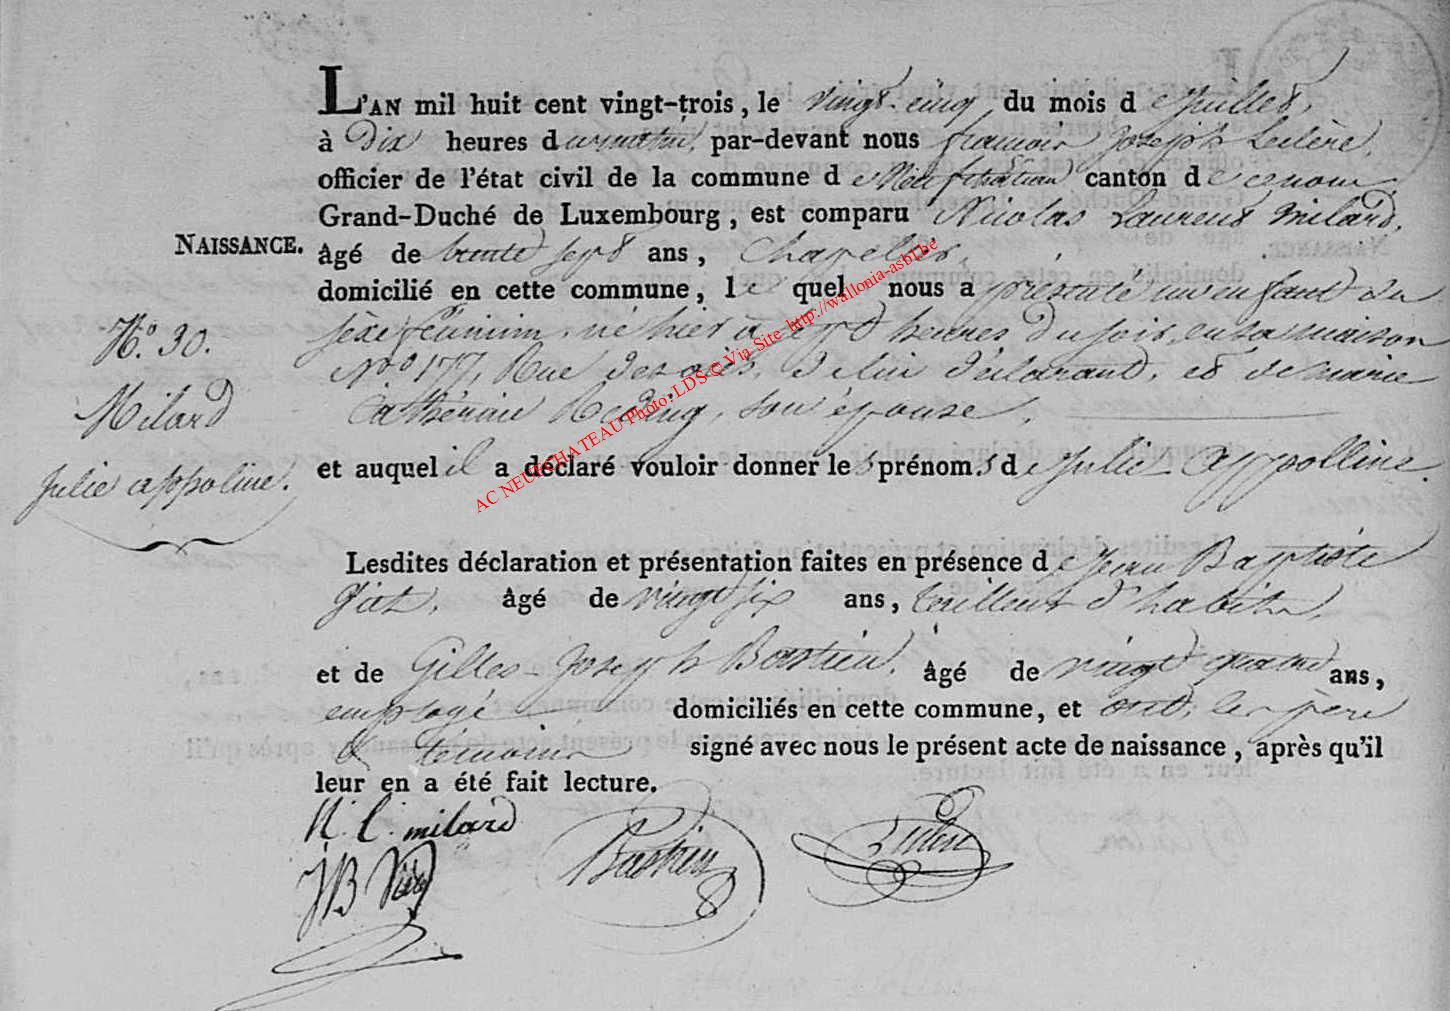 L'AN mil huit cent vingt-trois, le vingt-cinq, du mois de juillet,
à Dix heures du matin, par-devant nous françois Joseph Leclère,
officier de l'état civil de la commune de Neufchateau canton de ce nom,
Grand-Duché de Luxembourg, est comparu Nicolas Laurent Milard,
NAISSANCE.
âgé de trente sept ans, Chapelier,
domicilié en cette commune, lequel nous a présenté un enfant du
N.º 30.
sexe féminin, né hier à sept heures du soir, en sa maison
Nro 177, Rue des, de lui déclarant, et de marie
Milard
Cathérine, son épouse,
julie appoline.
et auquel il a déclaré vouloir donner les prénoms de Julie Appolline.
Lesdites déclaration et présentation faites en présence de Jean Baptiste
âgé de vingt six ans, tailleur d'habits,
et de Gilles-Joseph Bastien, âgé de vingt quatre ans,
employé domiciliés en cette commune, et ont, les père
& temoins signé avec nous le présent acte de naissance, après qu'il
leur en a été fait lecture.
N. L. milard
JB
Bastien
AC NEUFCHATEAU Photo: LDS © Via Site http://wallonia-asbl.be